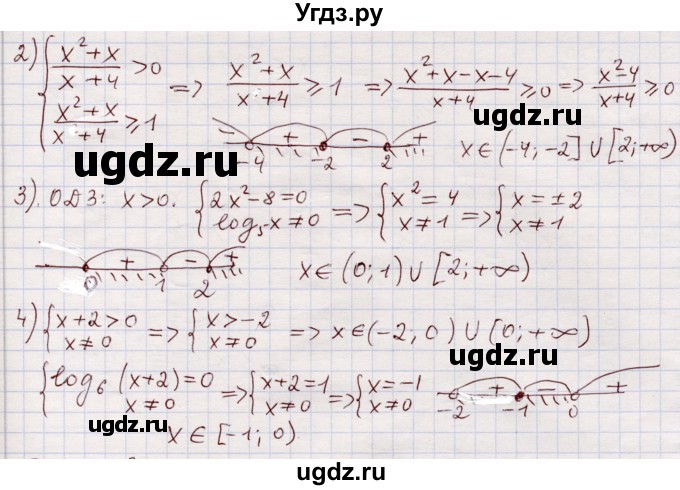 Угдз.ру
2) { (x²+x)/(x+4) > 0 ; (x²+x)/(x+4) ≥ 1 => (x²+x)/(x+4) ≥ 1 => (x²+x-x-4)/(x+4) ≥ 0 => (x²-4)/(x+4) ≥ 0
- -4 + -2 - 2 + x∈(-4; -2] ∪ [2; +∞)
ugdz.ru ugdz.ru
3). ОДЗ: x>0. { 2x²-8=0 ; log₅x≠0 => { x²=4 ; x≠1 => { x=±2 ; x≠1
0 + 1 - 2 x∈(0; 1) ∪ [2; +∞)
ugdz.ru
4) { x+2>0 ; x≠0 => { x>-2 ; x≠0 => x∈(-2; 0) ∪ [0; +∞)
ugdz.ru
{ log₆(x+2)=0 ; x≠0 => { x+2=1 ; x≠0 => { x=-1 ; x≠0 -2 + -1 - 0 +
x∈[-1; 0)
ugdz.ru
ugdz.ru